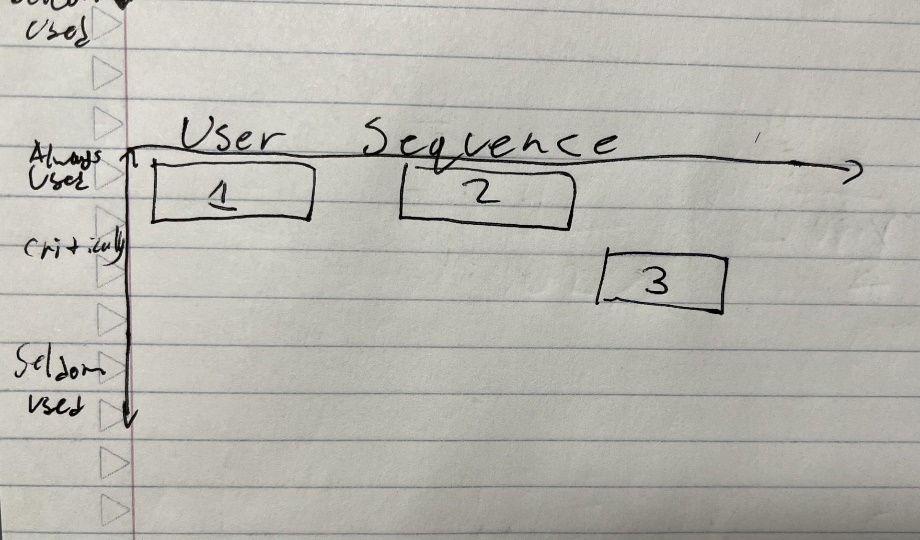 Used
User Sequence
Always
Used
1
2
critically
3
Seldom
Used